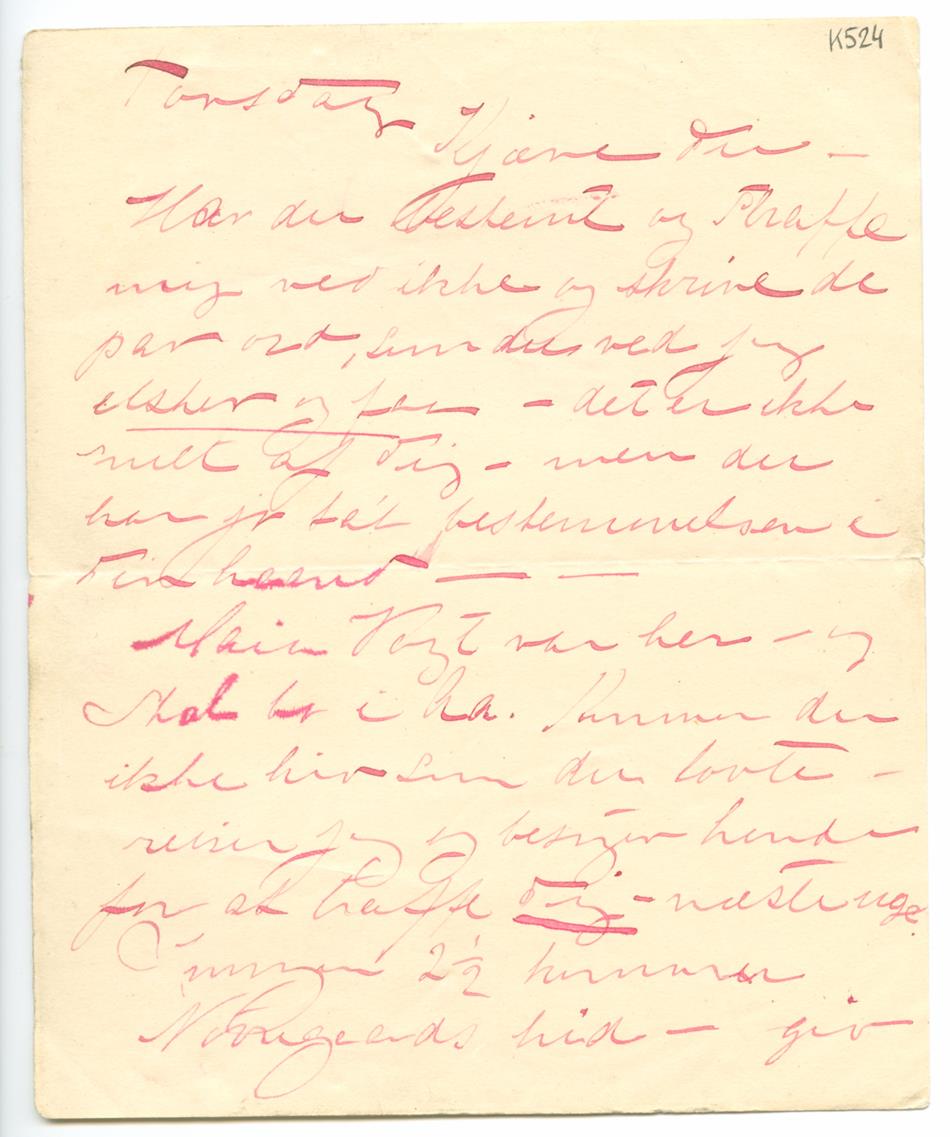 K524
Torsdag
Kjære du –
Har du bestemt og straffe
mig ved ikke og skrive de
par ord, som du ved jeg
elsker og faa – det er ikke
snilt af Dig – men du
har jo tat bestemmelsen i
Din haand — —
Vogt var her – og
skal bo i Aa. Kommer du
ikke hid som du lovte –
reiser jeg og besøger hende
for at træffe Dig – næste uge.
2½ kommer
Nörregaards hid – giv